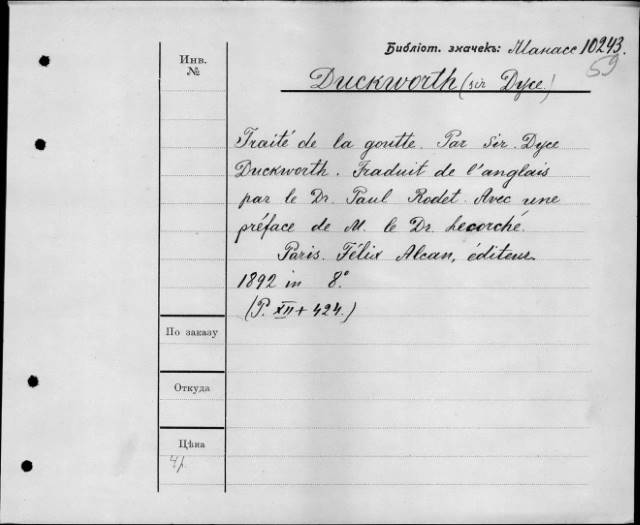 Инв.
№
Библіот. значекъ: Манасс 10243.
59
Duckworth (sir Dyce.)
Traité de la goutte. Par Sir. Dyce
Duckworth. Traduit de l'anglais
par le Dr. Paul Rodet. Avec une
préface de M. le Dr. Lecorché.
Paris. Félix Alcan, éditeur
1892 in 8º
(P. XII + 424.)
По заказу
Откуда
Цѣна